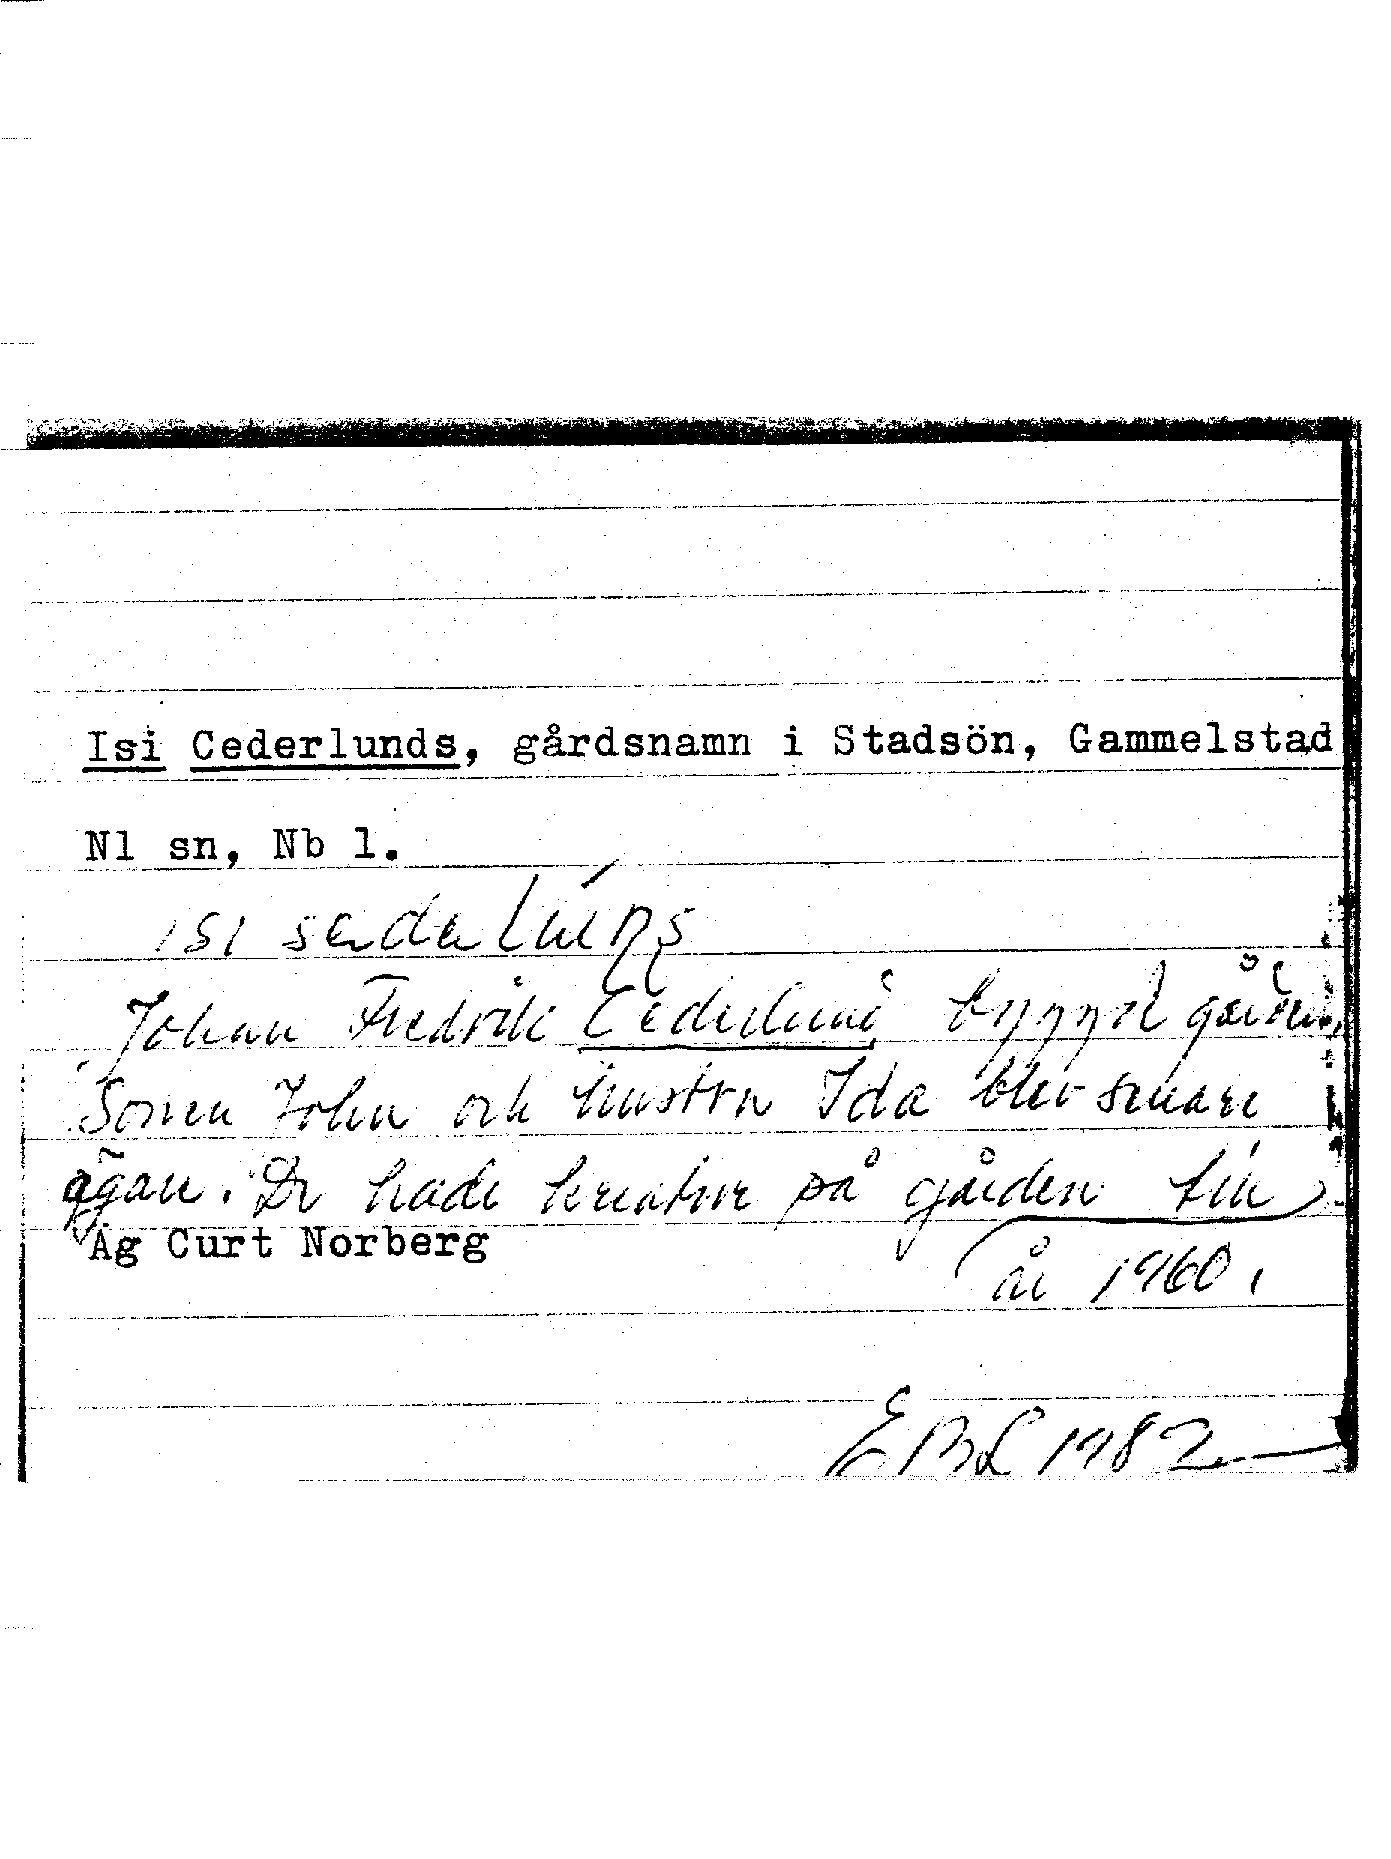 Isi Cederlunds, gårdsnamn i Stadsön, Gammelstad
Nl sn, Nb l.
isi
Johan Fredrik Cederlund byggde gården,
Sonen John och hustrun Ida blev senare
ägare. De hade kreatur på gården till
Äg Curt Norberg
år 1960.
EBL 1982